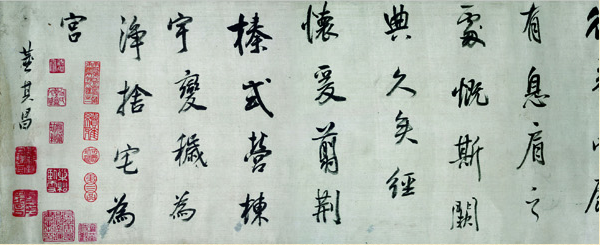 有息肩之
處慨斯闕
典久矣經
懷爰翦荊
榛式營棟
宇變穢為
淨捨宅為
宮
董其昌